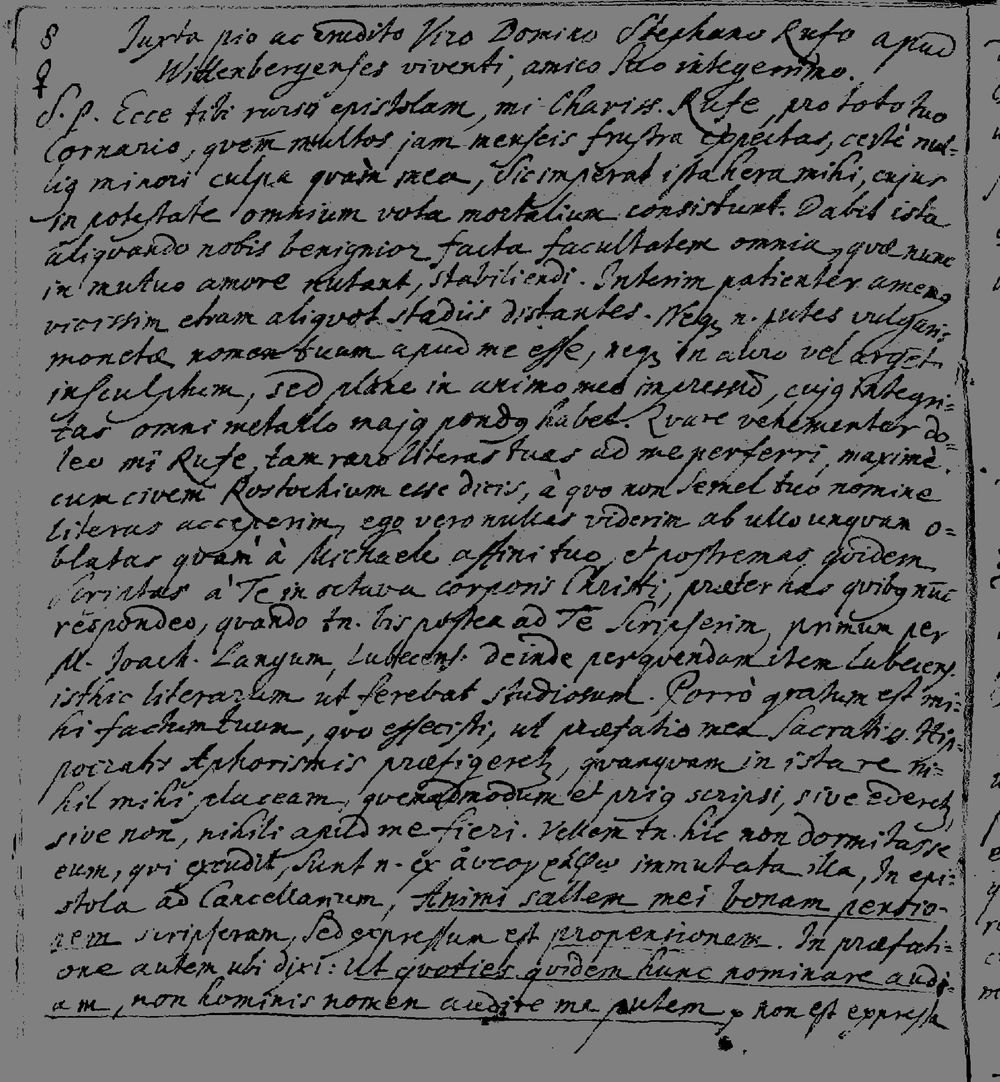 8 Juxta pio ac Erudito Viro Domino Stephano Rufo apud
Wittenbergenses viventi, amico suo integerrimo.
S. P. Ecce tibi rursq epistolam, mi Chariss. Rufe, pro toto tuo
Cornario, quem multos jam menseis frustra expectas, certè nul-
liq minori culpa quàm mea, sic imperat ista hera mihi, cujus
in potestate omnium vota mortalium consistunt. Dabit ista
aliquando nobis benignior facta facultatem omnia, quæ nunc
in mutuo amore nutant, stabiliendi. Interim patienter amemq
vicissim etiam aliquot stadiis distantes. Neq n. putes vulgaris
monetæ nomen tuum apud me esse, neq in auro vel arget.
insculptum, sed plane in animo meo impressū, cujq integri=
tas omni metallo majq pondq habet. Quare vehementer do=
leo mi Rufe, tam raro literas tuas ad me perferri, maximè
cum civem Rostochium esse dicis, à quo non semel tuo nomine
literas acceperim, ego vero nullas viderim ab ullo unquam o=
blatas quàm à Michaele affini tuo, et postremas quidem
scriptas à Te in octava corporis Christi, præter has quibq nūc
respondeo, quando tn. bis postea ad Te scripserim, primum per
M. Joach. Langum, Lubecens. deinde per quendam item Lubecens.
isthic literarum ut ferebat studiosum. Porrò gratum est mi=
hi factum tuum, quo effecisti, ut præfatio mea Sacratiss. Hip=
pocratis Aphorismis præfigeretz, quanquam in ista re ni=
hil mihi placeam, quemadmodum et priq scripsi, sive ederetz,
sive non, nihili apud me fieri. Vellem tn. hic non dormitasse
eum, qui excudit, sunt n. ex immutata illa, In epi=
stola ad Cancellarium, Animi saltem mei bonam pensio-
nem scripseram, sed expressum est propensionem. In præfati-
one autem ubi dixi: Ut quoties quidem hunc nominare audi=
am, non hominis nomen audire me putem, non est expressa